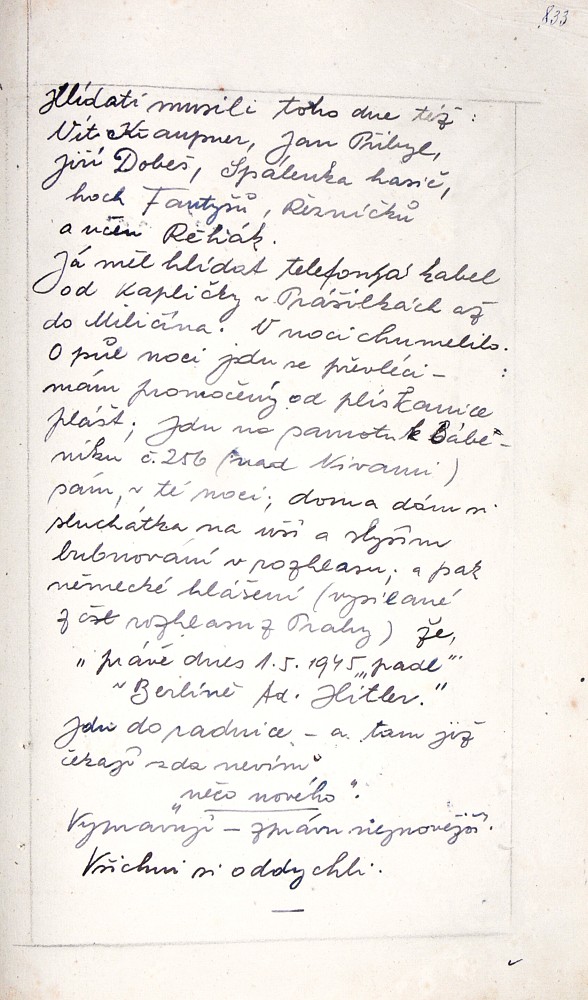 833
Hlídati musili toho dne též:
Vít Klaupner, Jan Přibyl,
Jiří Dobeš, Spálenka hasič,
hoch Fantyšů, Řezníčků
a učeň Řehák.
Já měl hlídat telefonní kabel
od kapličky v Prášilkách až
do Miličína. V noci chumelilo.
O půl noci jdu se převléci –
mám promočený od plískanice
plášť; jdu na samotu k Bábě-
níku č. 256 (nad Nivami)
sám, v té noci; doma dám si
sluchátka na uši a slyším
bubnování v rozhlasu; a pak
německé hlášení (vysílané
z rozhlasu z Prahy) že,
„právě dnes 1.5.1945 „padl"
v Berlíně Ad. Hitler."
Jdu do radnice – a tam již
čekají zda nevím
„něco nového".
Vypravuji – zprávu nejnovější.
Všichni si oddychli.